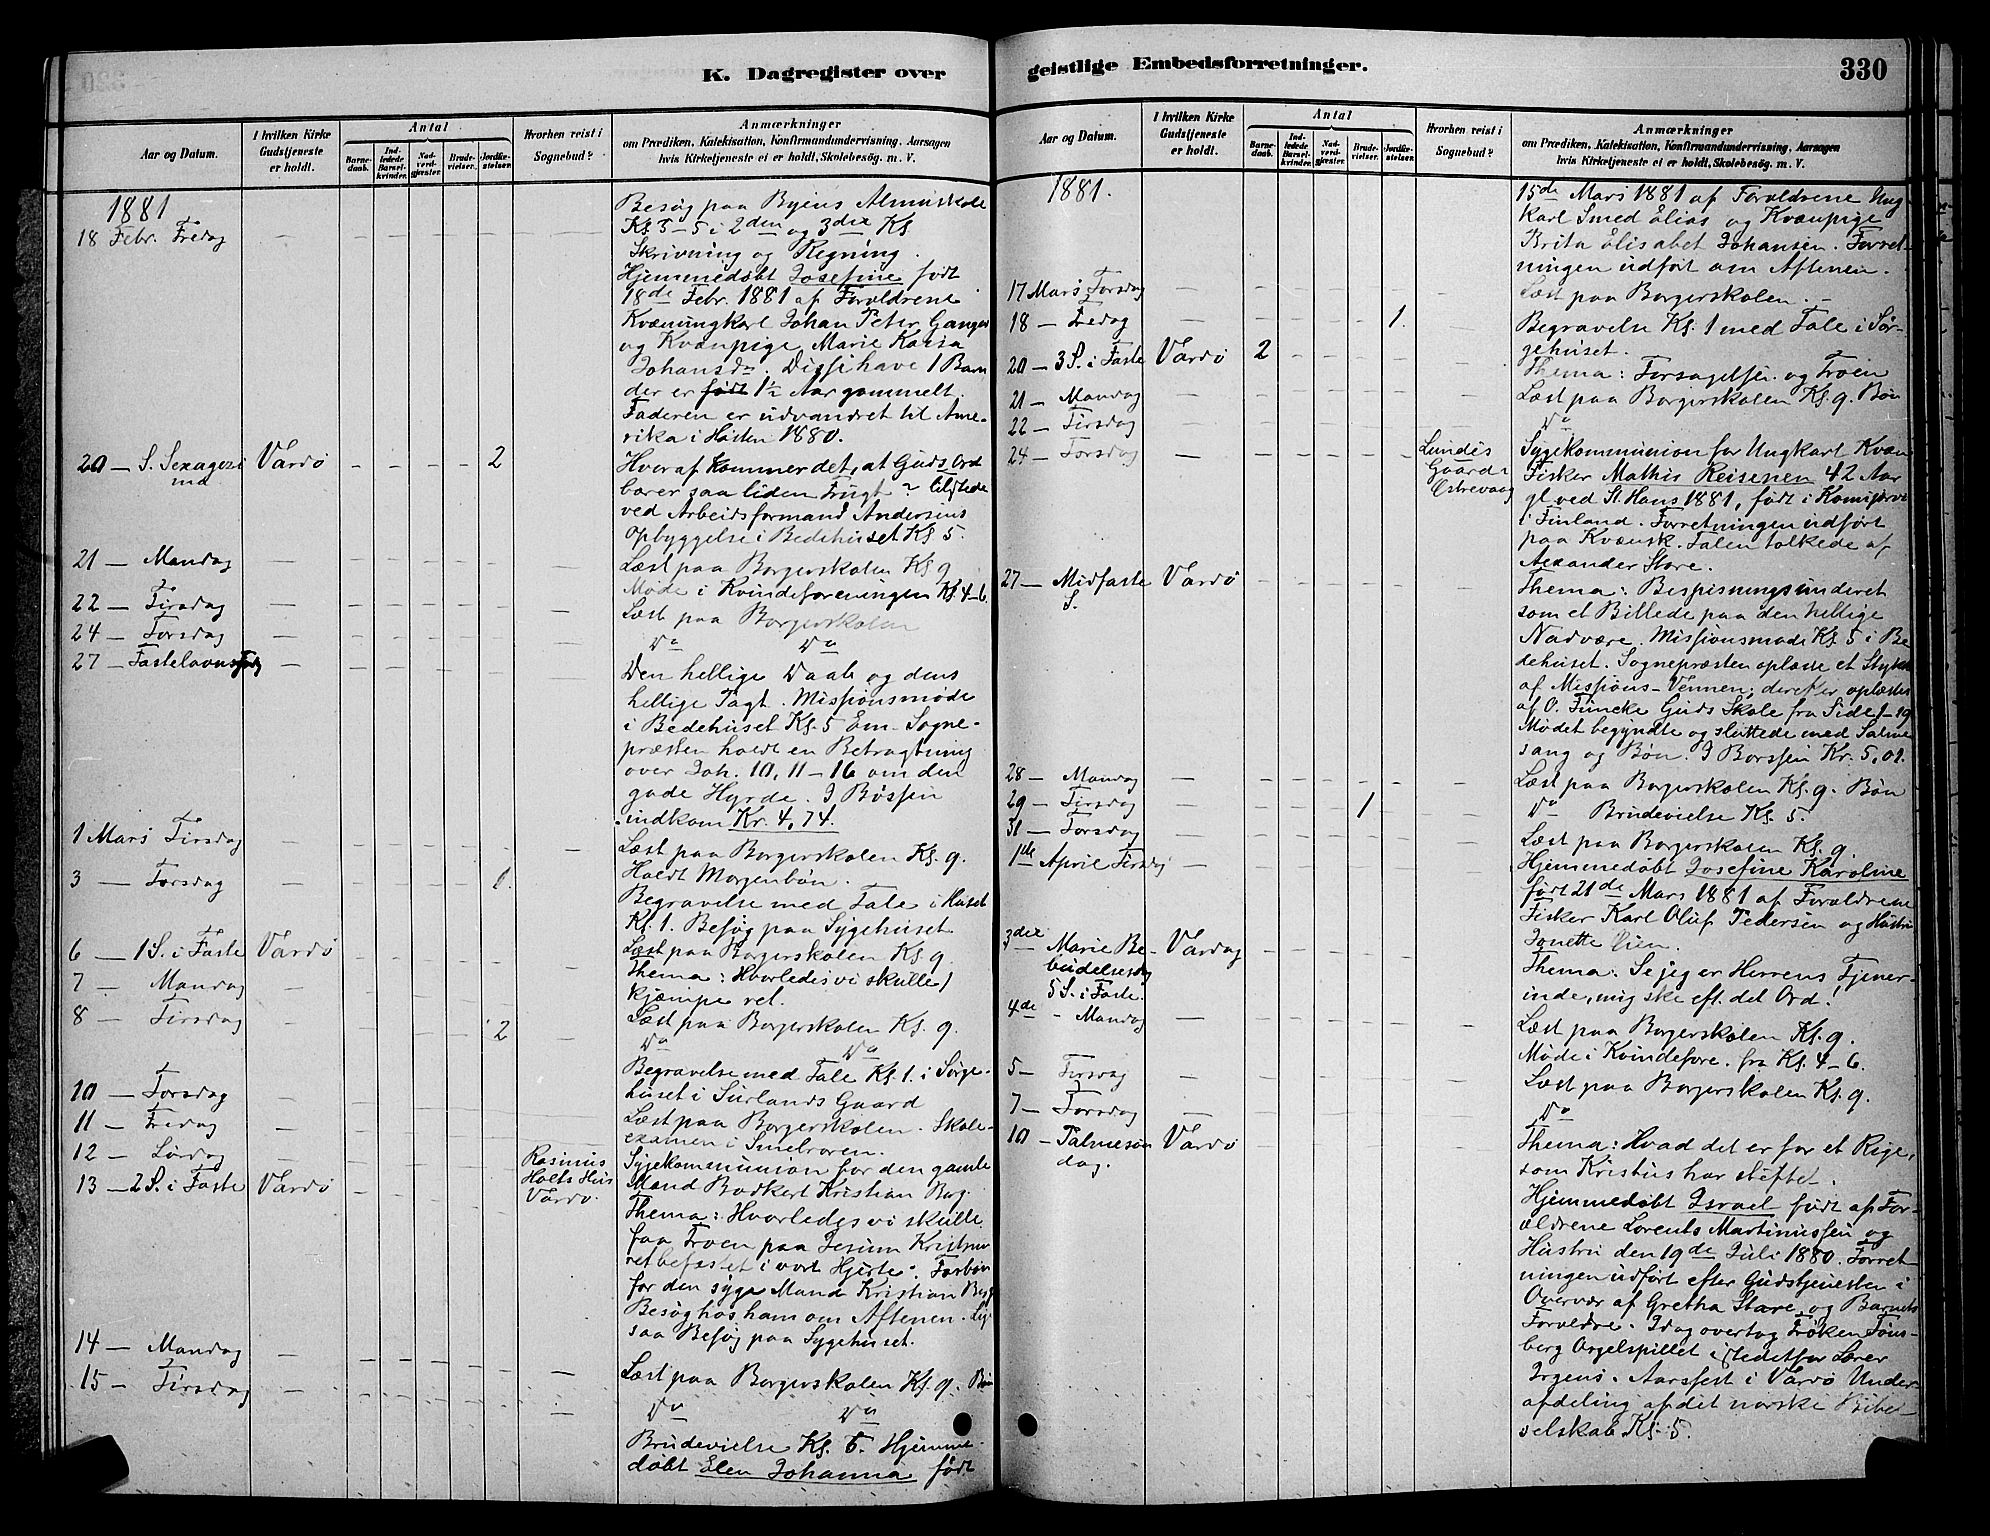 K. Dagregister over
Aar og Datum.
I hvilken Kirke Gudstjeneste er holdt.
Antal
Barnedaab.
Indledede Barselkvinder.
Nadverdgjæster.
Brudevielser.
Jordfæstelser.
Hvorhen reist i Sognebud?
Anmærkninger
om Prædiken, Katekisation, Konfirmandundervisning, Aarsagen
hvis Kirketjeneste ei er holdt, Skolebesøg. m. V.
1881
18 Febr. Fredag
Besøg paa Byens Almuskole
Kl 3–5 i 2den og 3die Kl
Skrivning og Regning.
Hjemmedøbt Josefine født
18de Febr. 1881 af Forældrene
Kvænungkarl Johan Peter
og Kvænpige Marie Kaisa
Johansdr. Disse have 1 Barn
der er født 1½ Aar gammelt.
Faderen er udvandret til Ame-
rika i Høsten 1880.
20 – S. Sexagesi
ma
Vardø
2
Hvoraf kommer det, at Guds Ord
bærer saa liden Frugt? tilstede
ved Arbeidsformand Andersens
Opbyggelse i Bedehuset Kl 5.
21 — Mandag
Læst paa Borgerskolen Kl 9
22 — Tirsdag
Møde i Kvindeforeningen Kl. 4–6.
24 — Torsdag
Læst paa Borgerskolen
Do Do
27 – Fastelavns
Den hellige Daab og dens
hellige Pagt. Missionsmøde
i Bedehuset Kl. 5 Em. Sogne-
præsten holdt en Betragtning
over Joh. 10, 11–16 om den
gode Hyrde. I Bøssen
indkom Kr. 4,74.
1 Mars Tirsdag
Læst paa Borgerskolen Kl. 9.
Holdt Morgenbøn.
3 — Torsdag
1.
Begravelse med Tale i Huset
Kl. 1. Besøg paa Sygehuset
Læst paa Borgerskolen Kl 9.
6 — 1 S. i Faste
Vardø
Thema: Hvorledes vi skulle
kjæmpe ret.
7 — Mandag
Læst paa Borgerskolen Kl. 9.
8 — Tirsdag
2
Do Do
Begravelse med Tale Kl. 1. i Sørge-
huset i Surlands Gaard
10 — Torsdag
Læst paa Borgerskolen. Skole-
11 — Fredag
examen i Smelroren.
12 — Lørdag
Rasmus
Holts Hus
Vardø.
Sygekommunion for den gamle
Mand Bødkert Kristian Borg.
13 — 2 S. i Faste
Vardø
Thema: Hvorledes vi skulle
faa Troen paa Jesum Kristum
ret befæstet i vort Hjerte. Forbøn
for den syge Mand Kristian
Besøg hos ham om Aftenen.
saa Besøg paa Sygehuset.
14 — Mandag
Læst paa Borgerskolen Kl. 9. Bøn
15 — Tirsdag
Do Do
Brudevielse Kl. 6. Hjemme-
døbt Elen Johanna født
geistlige Embedsforretninger.
330
Aar og Datum.
I hvilken Kirke Gudstjeneste er holdt.
Antal
Barnedaab.
Indledede Barselkvinder.
Nadverdgjæster.
Brudevielser.
Jordfæstelser.
Hvorhen reist i Sognebud?
Anmærkninger
om Prædiken, Katekisation, Konfirmandundervisning, Aarsagen
hvis Kirketjeneste ei er holdt, Skolebesøg. m. V.
1881.
15de Mars 1881 af Forældrene Ung
karl Smed Elias og Kvænpige
Brita Elisabet Johansen. Forret-
ningen udført om Aftenen.
17 Mars Torsdag
Læst paa Borgerskolen.
18 — Fredag
1.
Begravelse Kl. 1 med Tale i Sør-
gehuset.
20 — 3 S. i Faste
Vardø
2
Thema: Forsagelsen og Troen
21 — Mandag
Læst paa Borgerskolen Kl. 9. Bøn
22 — Tirsdag
Do
24 — Torsdag
Lundes
Gaard
Østrevaag
Sygekommunion for Ungkarl Kvæn
Fisker Mathis Reisenen 42 Aar
gl ved St. Hans 1881, født i
i Finland. Forretningen udført
paa Kvænsk. Talen tolkede af
Alexander Stare.
27 — Midfaste
S.
Vardø
Thema: Bespisningsunderet
som et Billede paa den hellige
Nadvere. Missionsmøde Kl. 5 i Be
dehuset. Sognepræsten oplæste et Stykke
af Missions-Vennen; derefter oplæstes
af O. Funcke Guds Skole fra Side 1–19
Mødet begyndte og sluttede med Salme
sang og Bøn. I Børssen Kr. 5,01.
28 — Mandag
Læst paa Borgerskolen Kl. 9. Bøn
29 — Tirsdag
1
Do Brudevielse Kl. 5.
31 — Torsdag
Læst paa Borgerskolen Kl. 9.
1de April
Hjemmedøbt Josefine Karoline
født 21de Mars 1881 af Forældrene
Fisker Karl Oluf Pedersen og Hustru
Jonette Lien.
3die Marie Be-
budelsesdag
5 S. i Faste.
Vardø
Thema: Se jeg er Herrens Tjener-
inde, mig ske eft. dit Ord!
4de - Mandag
Læst paa Borgerskolen Kl. 9.
Møde i Kvindefore. fra Kl. 4–6.
5 — Tirsdag
Læst paa Borgerskolen Kl. 9.
7 — Torsdag
Do
10 — Palmesøn
dag.
Vardø
Thema: Hvad det er for et Rige,
som Kristus har stiftet.
Hjemmedøbt Israel født af For-
ældrene Lorents Martinussen og
Hustru den 19de Juli 1880. Forret
ningen udført efter Gudstjenesten i
Overvær af Gretha Stare og Barnets
Forældre. Idag overtog Frøken Tøns-
berg Orgelspillet istedetfor Lærer
Irgens. Aarsfest i Vardø Under-
afdeling af det norske Bibel-
selskab Kl. 5.